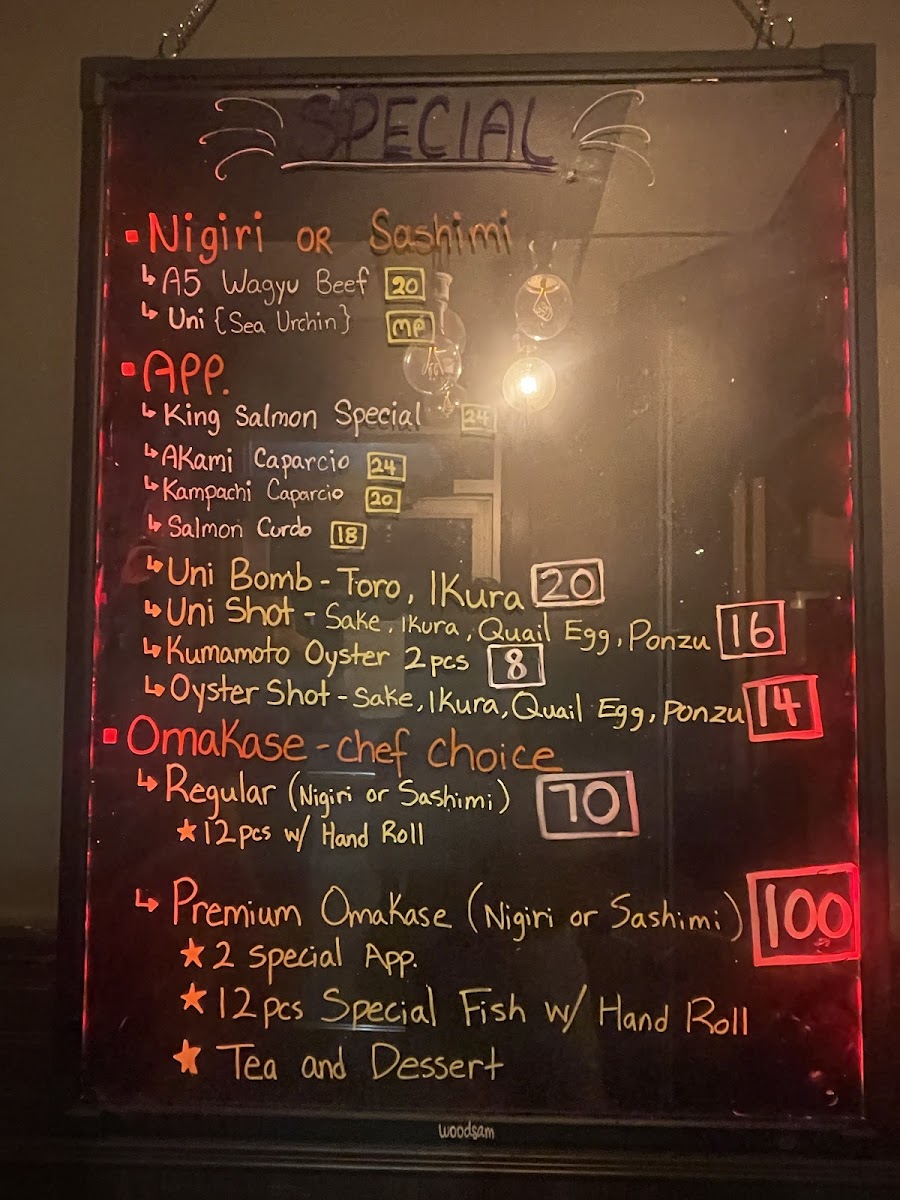 SPECIAL
Nigiri OR Sashimi
↳ A5 Wagyu Beef 20
↳ Uni {Sea Urchin} MP
APP.
↳ King Salmon Special 24
↳ Akami Caparcio 24
↳ Kampachi Caparcio 20
↳ Salmon Curdo 18
↳ Uni Bomb - Toro, Ikura 20
↳ Uni Shot - Sake, Ikura, Quail Egg, Ponzu 16
↳ Kumamoto Oyster 2pcs 8
↳ Oyster Shot - Sake, Ikura, Quail Egg, Ponzu 14
Omakase - chef choice
↳ Regular (Nigiri or Sashimi) 70
★ 12pcs w/ Hand Roll
↳ Premium Omakase (Nigiri or Sashimi) 100
★ 2 special App.
★ 12pcs Special Fish w/ Hand Roll
★ Tea and Dessert
woodsam